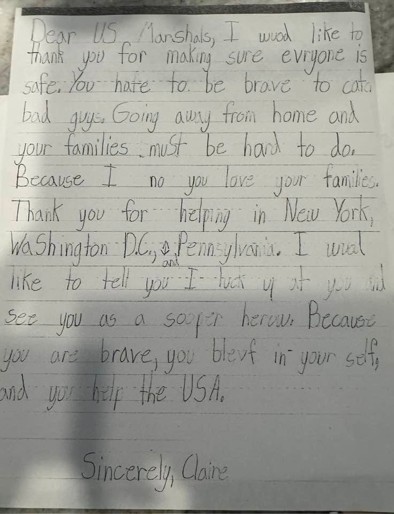 Dear US Marshals, I wuod like to
thank you for making sure evryone is
safe. You hate to be brave to catc
bad guys. Going away from home and
your families must be hard to do.
Because I no you love your families.
Thank you for helping in New York,
Washington D.C., and Pennsylvania. I wuod
like to tell you I luck up at you and
see you as a sooper herow. Because
you are brave, you blevf in your self,
and you help the USA.
Sincerely, Claire